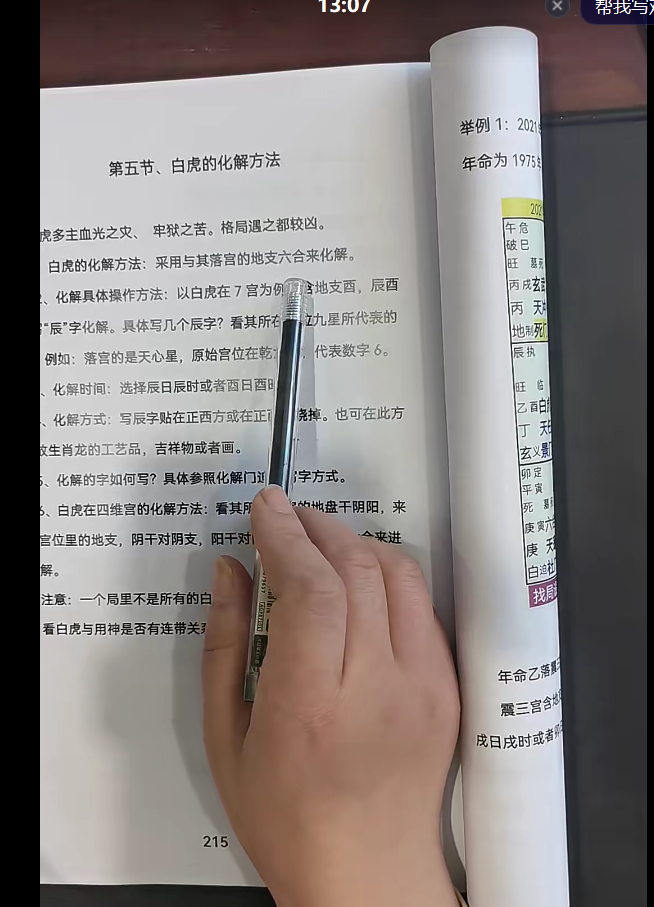 13:07
帮我写
第五节、白虎的化解方法
虎多主血光之灾、牢狱之苦。格局遇之都较凶。
白虎的化解方法：采用与其落宫的地支六合来化解。
、化解具体操作方法：以白虎在7宫为例 含地支酉，辰酉
"辰"字化解。具体写几个辰字？看其所在 位九星所代表的
例如：落宫的是天心星，原始宫位在乾 代表数字6。
、化解时间：选择辰日辰时或者酉日酉时
、化解方式：写辰字贴在正西方或在正 烧掉。也可在此方
放生肖龙的工艺品，吉祥物或者画。
、化解的字如何写？具体参照化解门迫 写字方式。
、白虎在四维宫的化解方法：看其所 的地盘干阴阳，来
宫位里的地支，阴干对阴支，阳干对 合来进
解。
注意：一个局里不是所有的白
看白虎与用神是否有连带关系
215
举例1：2021
年命为1975年
202
午 危
破 巳
旺 墓
丙 戌 玄武
丙 天
地 制 死门
辰 执
旺 临
乙 酉 白虎
丁 天
玄 义 景门
卯 定
平 寅
死 墓
庚 寅 六
庚 天
白 迫
找局
年命乙落震
震三宫含地
戌日戌时或者卯